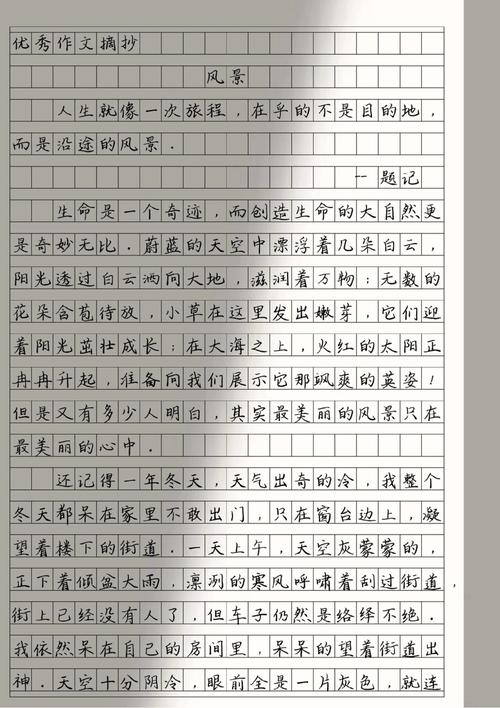 优秀作文摘抄
风景
人生就像一次旅程，在乎的不是目的地，
而是沿途的风景．
--题记
生命是一个奇迹，而创造生命的大自然更
是奇妙无比．蔚蓝的天空中漂浮着几朵白云，
阳光透过白云洒向大地，滋润着万物；无数的
花朵含苞待放，小草在这里发出嫩芽，它们迎
着阳光茁壮成长；在大海之上，火红的太阳正
冉冉升起，准备向我们展示它那飒爽的英姿！
但是又有多少人明白，其实最美丽的风景只在
最美丽的心中．
还记得一年冬天，天气出奇的冷，我整个
冬天都呆在家里不敢出门，只在窗台边上，凝
望着楼下的街道．一天上午，天空灰蒙蒙的，
正下着倾盆大雨，凛冽的寒风呼啸着刮过街道，
街上已经没有人了，但车子仍然是络绎不绝．
我依然呆在自己的房间里，呆呆的望着街道出
神．天空十分阴冷，眼前全是一片灰色，就连